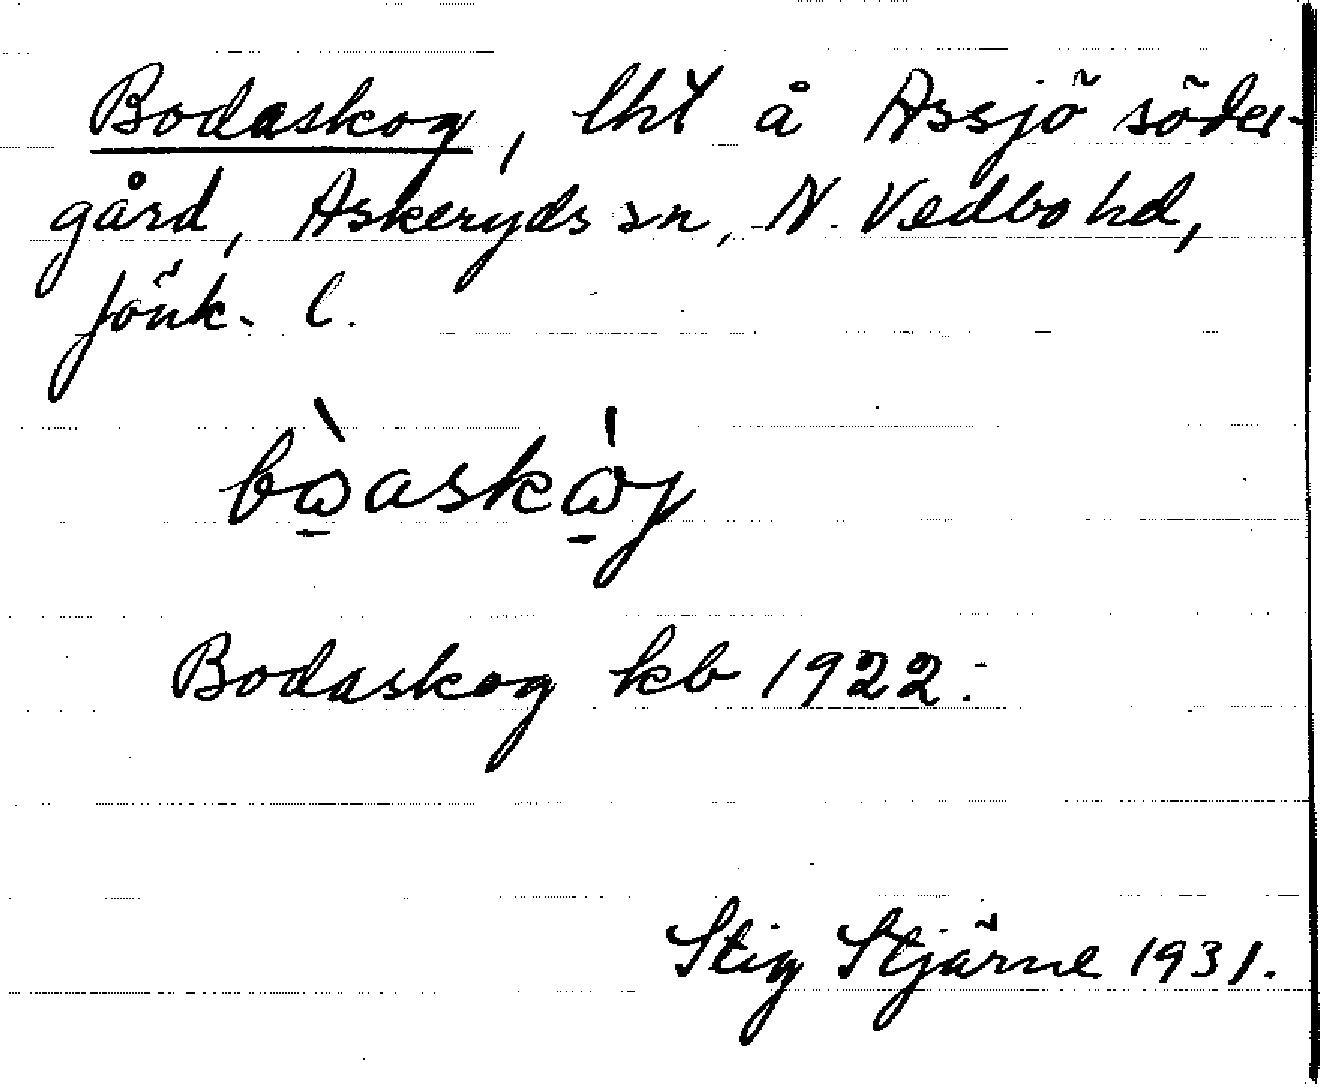 Bodaskog, lht å Assjö söder-
gård, Askeryds sn, N. Vedbo hd,
Jönk. l.
bὼ̱askω̱̍j
Bodaskog kb 1922.
Stig Stjärne 1931.